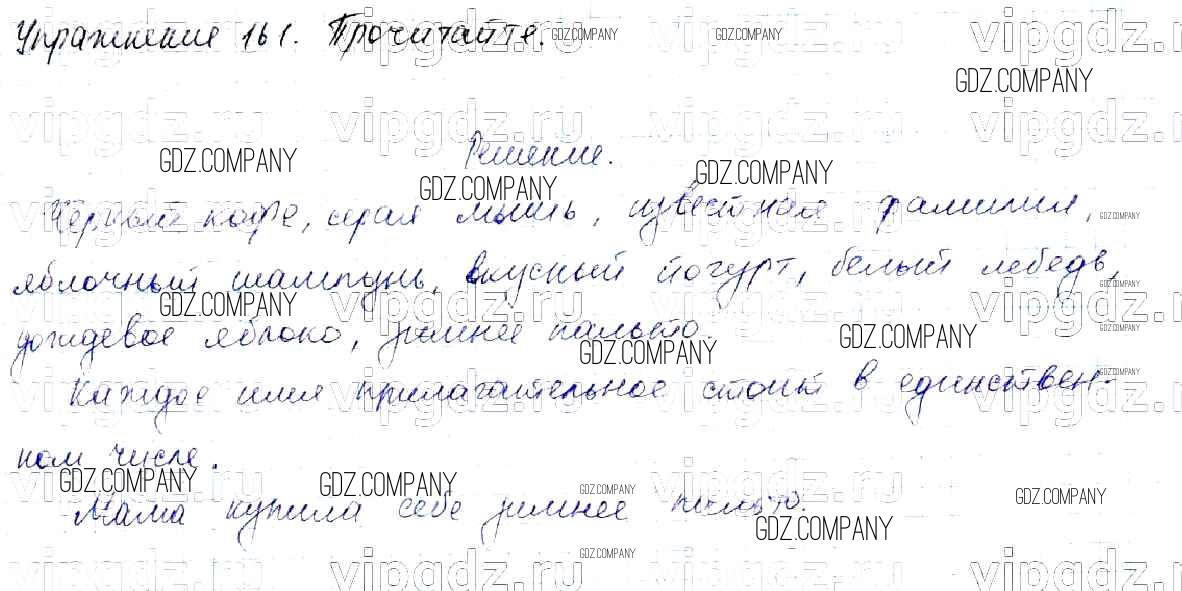 Упражнение 161. Прочитайте.
Решение.
Черный кофе, серая мышь, известная фамилия,
яблочный шампунь, вкусный йогурт, белый лебедь,
дождевое яблоко, зимнее пальто.
Каждое имя прилагательное стоит в единствен-
ном числе.
Мама купила себе зимнее пальто.
vipgdz.ru
GDZ.COMPANY